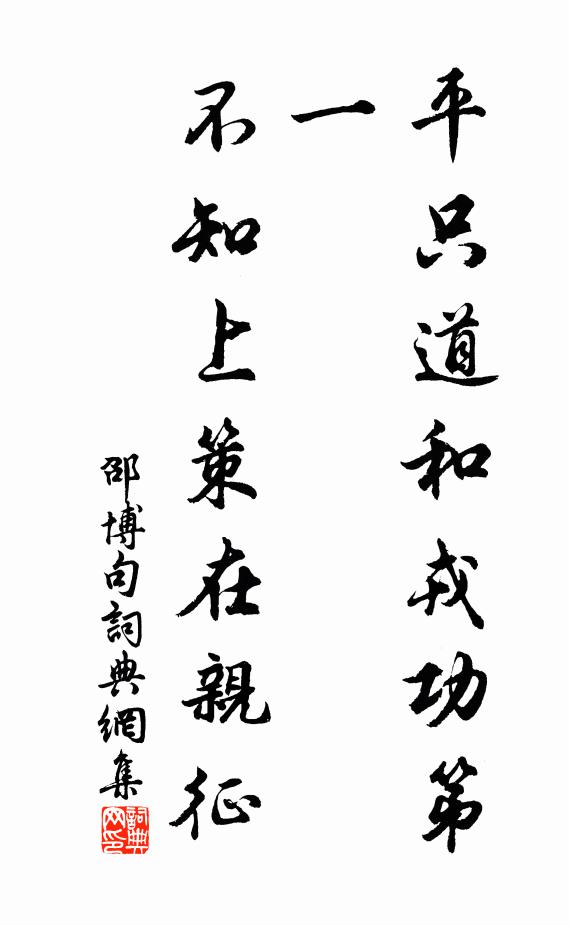 平只道和戎功第
一
不知上策在親征
邵博句詞典網集
詞典网印